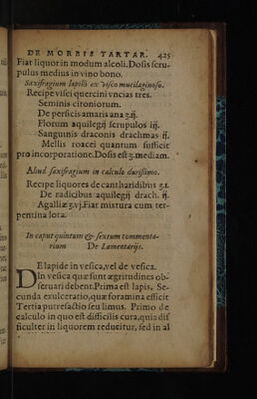 DE MORBIS TARTAR. 425
Fiat liquor in modum alcoli. Dosis scru-
pulus medius in vino bono.
Saxifragium lapilli ex visco mucilaginoso.
Recipe visci quercini vncias tres.
Seminis citoniorum.
De persicis amaris ana ʒ ij.
Florum aquilegij scrupulos iij.
Sanguinis draconis drachmas ij.
Mellis roacei quantum sufficit
pro incorporatione. Dosis est ʒ mediam.
Aliud saxifragium in calculo durissimo.
Recipe liquores de cantharidibus ʒ.
De radicibus aquilegij drach. ij.
Agalliæ ʒ vj. Fiat mistura cum ter-
pentina lota.
In caput quintum & sextum commenta-
rium De
DE lapide in vesica, vel de vesica.
In vesica quæ sunt ægritudines ob-
seruari debent. Prima est lapis. Se-
cunda exulceratio, quæ foramina efficit
Tertia putrefactio seu limus. Primo de
calculo in quo est difficilis cura, quia dif
ficulter in liquorem reducitur, sed in al